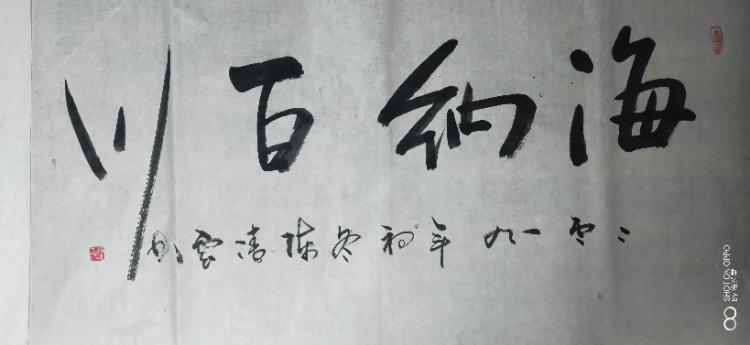 海纳百川
二零一九年初冬陈清云书
SHOT ON OPPO